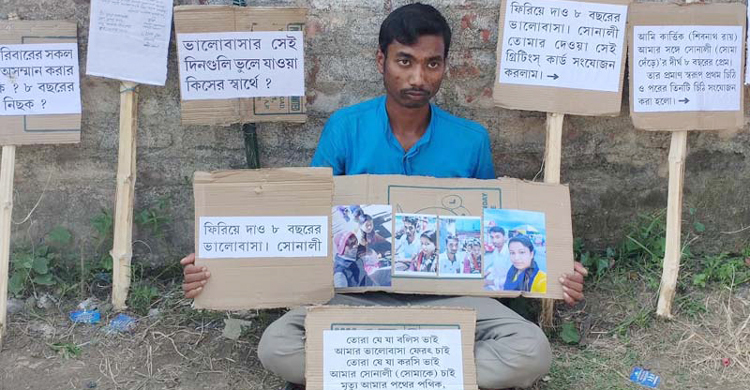 রিবারের সকল
অসম্মান করার
ক ? ৮ বছরের
নিছক ?
ভালোবাসার সেই
দিনগুলি ভুলে যাওয়া
কিসের স্বার্থে ?
ফিরিয়ে দাও ৮ বছরের
ভালোবাসা। সোনালী
তোমার দেওয়া সেই
গ্রিটিংস্ কার্ড সংযোজন
করলাম। →
আমি কার্ত্তিক (শিবনাথ রায়)
আমার সঙ্গে সোনালী (সোমা
দেঁড়ে)'র দীর্ঘ ৮ বছরের প্রেম।
তার প্রমাণ স্বরূপ প্রথম চিঠি
ও পরের তিনটি চিঠি সংযোজন
করা হলো। →
ফিরিয়ে দাও ৮ বছরের
ভালবাসা। সোনালী
তোরা যে যা বলিস ভাই
আমার ভালোবাসা ফেরৎ চাই
তোরা যে যা করসি ভাই
আমার সোনালী (সোমাকে) চাই
মৃত্যু আমার পথের পথিক,